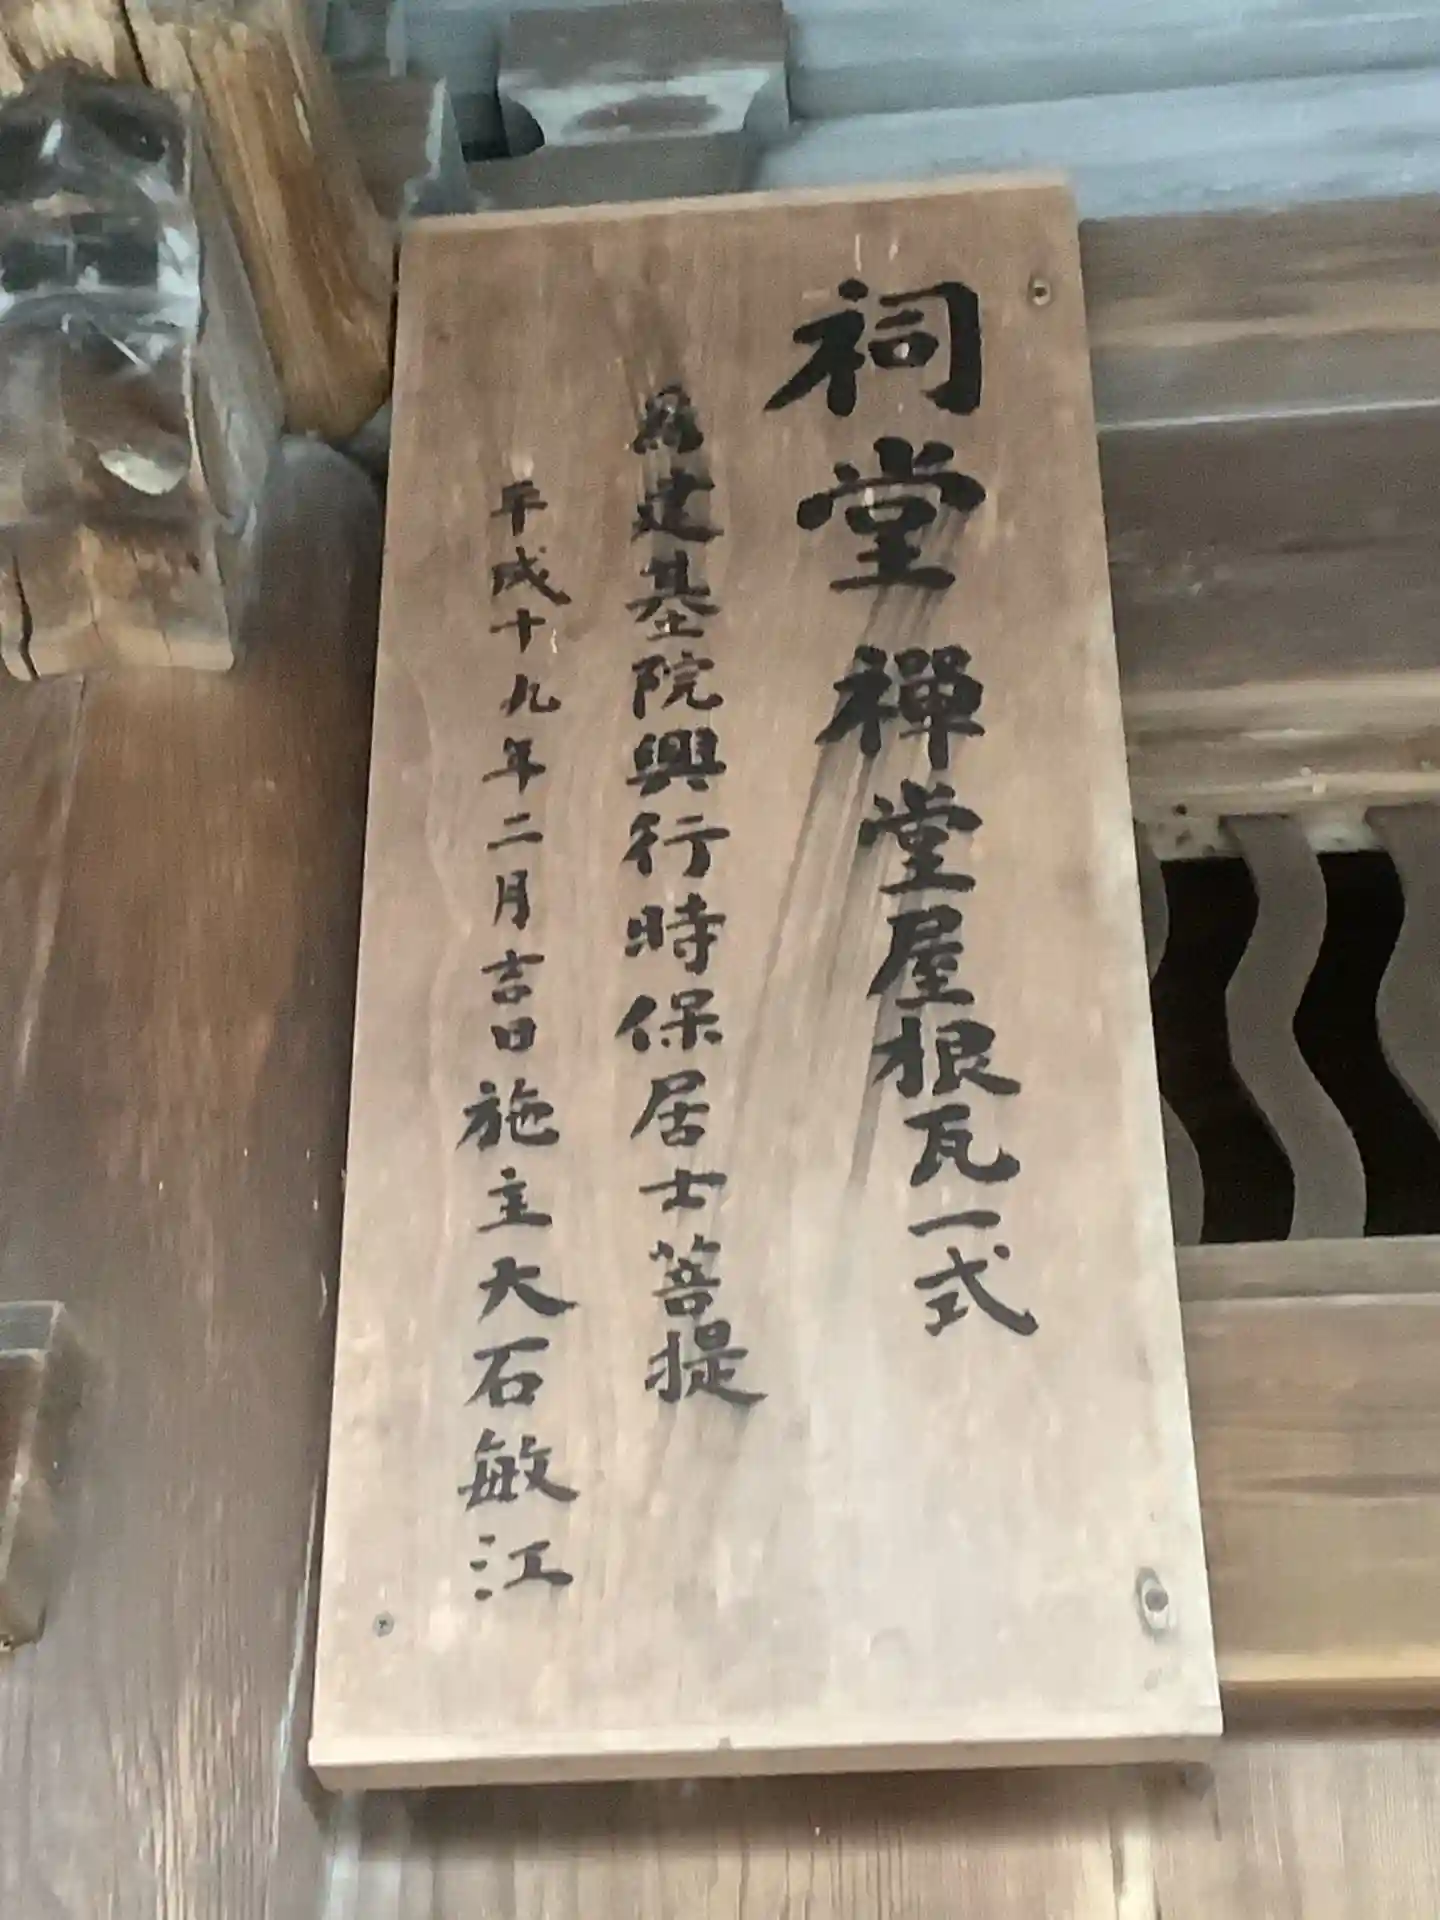 祠堂禪堂屋根瓦一式
為建基院興行時保居士菩提
平成十九年二月吉日施主大石敏江